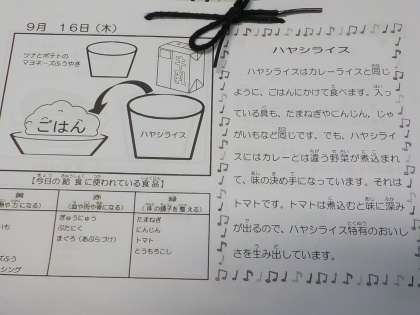 9月 16日(木)
ツナとポテトの
マヨネーズふうやき
ごはん
ハヤシライス
【今日の給食に使われている食品】
黄 赤 緑
(血や肉や骨になる) (体の調子を整える)
ぎゅうにゅう たまねぎ
ぶたにく にんじん
まぐろ(あぶらづけ) トマト
とうもろこし
ハヤシライス
ハヤシライスはカレーライスと同じ
ように、ごはんにかけて食べます。入っ
ている具も、たまねぎやにんじん、じゃ
がいもなど同じです。でも、ハヤシライ
スにはカレーとは違う野菜が煮込まれ
て、味の決め手になっています。それは
トマトです。トマトは煮込むと味に深み
が出るので、ハヤシライス特有のおいし
さを生み出しています。